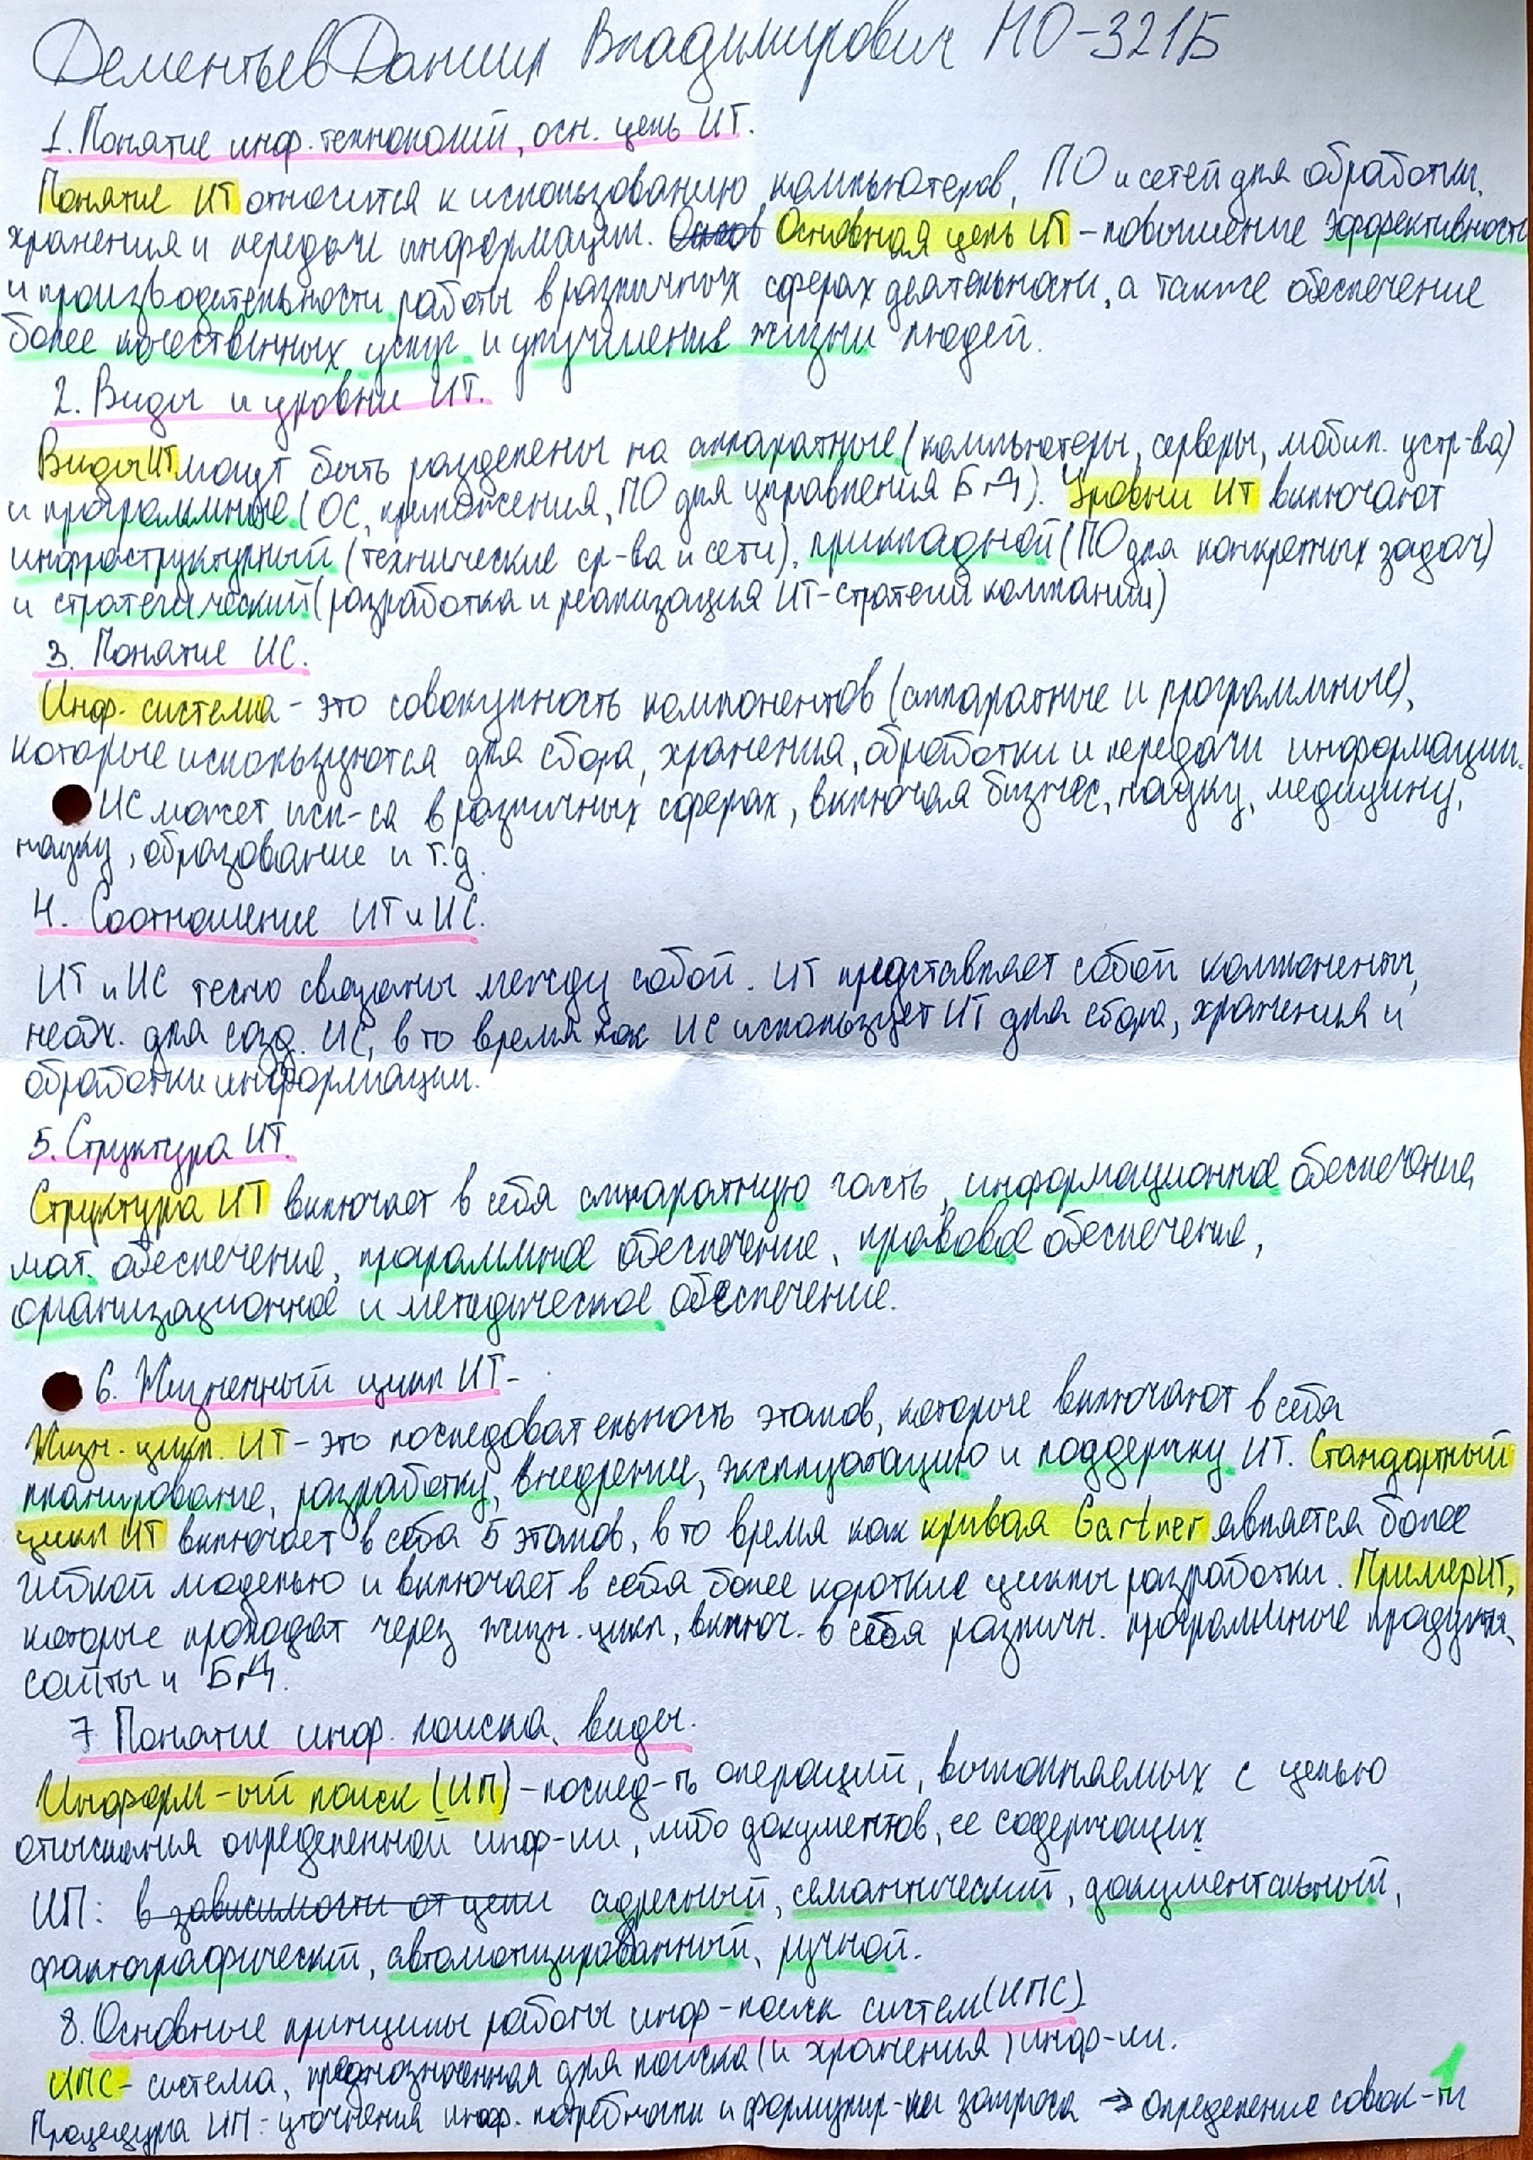 Дементьев Даниил Владимирович НО-321Б
1. Понятие инф. технологий, осн. цель ИТ.
Понятие ИТ относится к использованию компьютеров, ПО и сетей для обработки,
хранения и передачи информации. Основ Основная цель ИТ - повышение эффективности
и производительности работы в различных сферах деятельности, а также обеспечение
более качественных услуг и улучшения жизни людей.
2. Виды и уровни ИТ.
Виды ИТ могут быть разделены на аппаратные (компьютеры, серверы, мобил. устр-ва)
и программные (ОС, приложения, ПО для управления БД). Уровни ИТ включают
инфраструктурный (технические ср-ва и сети), прикладной (ПО для конкретных задач)
и стратегический (разработка и реализация ИТ-стратегий компании)
3. Понятие ИС.
Инф. система - это совокупность компонентов (аппаратные и программные),
которые используются для сбора, хранения, обработки и передачи информации.
ИС может исп-са в различных сферах, включая бизнес, науку, медицину,
науку, образование и т.д.
4. Соотношение ИТ и ИС.
ИТ и ИС тесно связаны между собой. ИТ представляет собой компоненты,
необх. для созд. ИС, в то время как ИС использует ИТ для сбора, хранения и
обработки информации.
5. Структура ИТ.
Структура ИТ включает в себя аппаратную часть, информационное обеспечение,
мат. обеспечение, программное обеспечение, правовое обеспечение,
организационное и методическое обеспечение.
6. Жизненный цикл ИТ-
Жизн. цикл. ИТ - это последовательность этапов, которые включают в себя
планирование, разработку, внедрение, эксплуатацию и поддержку ИТ. Стандартный
цикл ИТ включает в себя 5 этапов, в то время как кривая Gartner является более
гибкой моделью и включает в себя более короткие циклы разработки. Пример ИТ,
которые проходят через жизн. цикл, включ. в себя различн. программные продукты,
сайты и БД.
7 Понятие инф. поиска, виды.
Информ-ый поиск (ИП) - послед-ть операций, выполняемых с целью
отыскания определенной инф-ии, либо документов, ее содержащих
ИП: в зависимости от цели адресный, семантический, документальный,
фактографический, автоматизированный, ручной.
8. Основные принципы работы инф-поиск систем (ИПС)
ИПС - система, предназначенная для поиска (и хранения) инф-ии.
Процедура ИП: уточнения инф. потребности и формулир-ка запроса → определение совок-ти
1